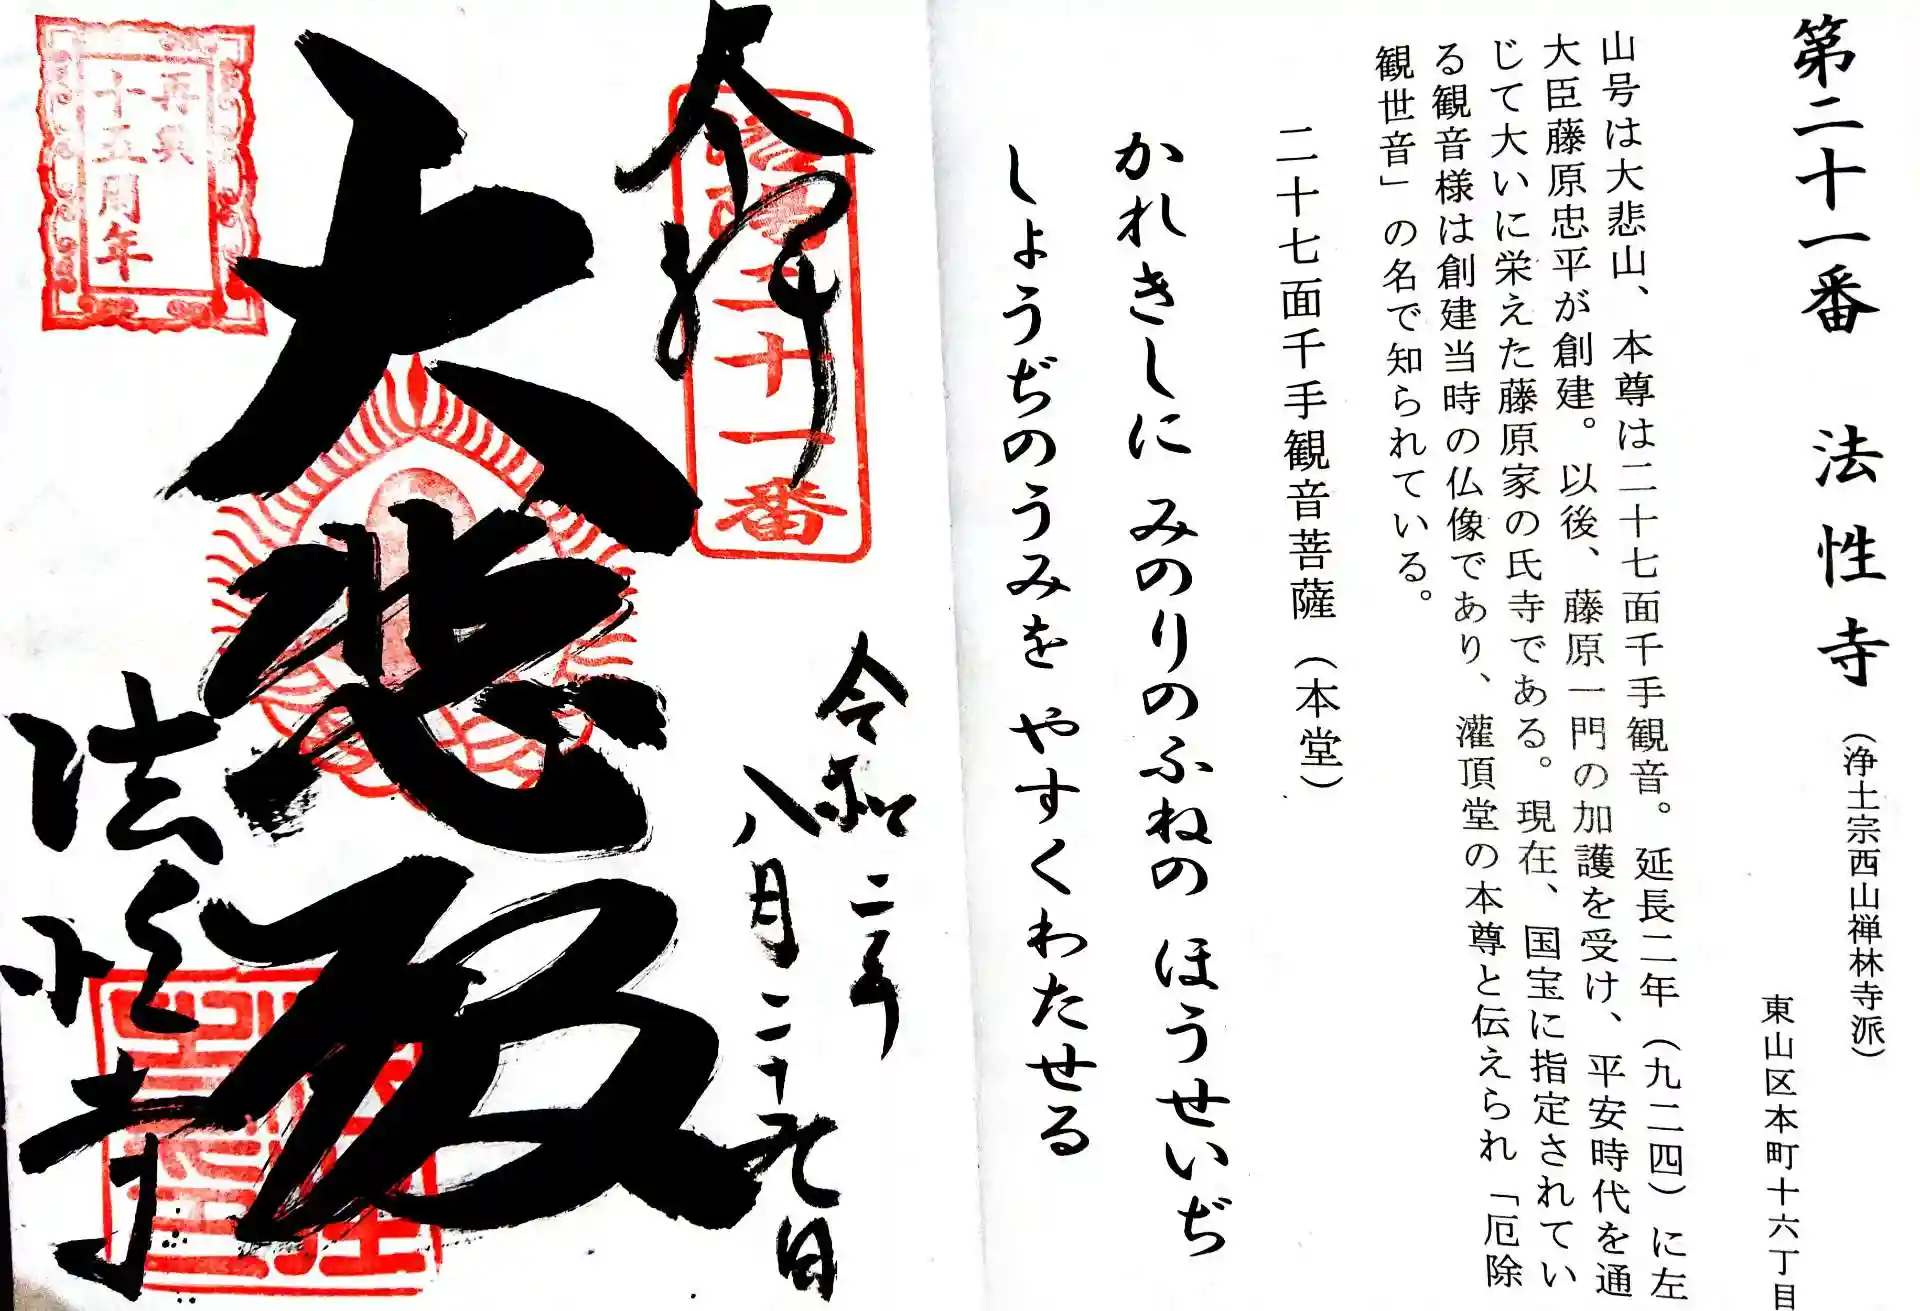 第二十一番　法性寺（浄土宗西山禅林寺派）
東山区本町十六丁目
山号は大悲山、本尊は二十七面千手観音。延長二年（九二四）に左
大臣藤原忠平が創建。以後、藤原一門の加護を受け、平安時代を通
じて大いに栄えた藤原家の氏寺である。現在、国宝に指定されてい
る観音様は創建当時の仏像であり、灌頂堂の本尊と伝えられ「厄除
観世音」の名で知られている。
二十七面千手観音菩薩（本堂）
かれきしに みのりのふねの ほうせいぢ
しょうぢのうみを やすくわたせる
奉拝
二十一番
令和二年
八月二十九日
大悲殿
法性寺
再興
十五周年